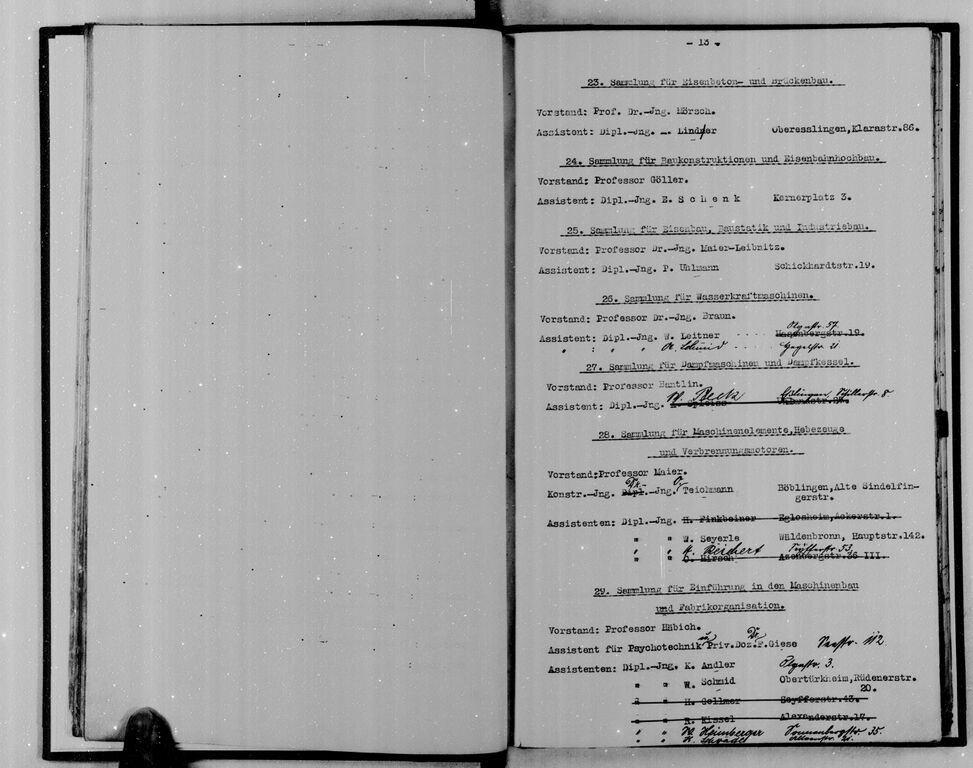 - 13 -
23. Sammlung für Eisenbeton- und Brückenbau.
Vorstand: Prof. Dr.-Jng. Mörsch.
Assistent: Dipl.-Jng. Lindner Oberesslingen,Klarastr.86.
24. Sammlung für Baukonstruktionen und Eisenbahnhochbau.
Vorstand: Professor Göller.
Assistent: Dipl.-Jng. E. S c h e n k Kernerplatz 3.
25. Sammlung für Eisenbau, Baustatik und Industriebau.
Vorstand: Professor Dr.-Jng. Maier-Leibnitz.
Assistent: Dipl.-Jng. P. Uhlmann Schickhardtstr.19.
26. Sammlung für Wasserkraftmaschinen.
Vorstand: Professor Dr.-Jng. Braun.
Olgastr. 57.
Assistent: Dipl.-Jng. W. Leitner Hasenbergstr.19.
" : " " A. Schmid 21.
27. Sammlung für Dampfmaschinen und Dampfkessel.
Vorstand: Professor Bantlin.
W. Beck Eßlingen, Schillerstr. 8
Assistent: Dipl.-Jng.
28. Sammlung für Maschinenelemente,Hebezeuge
und Verbrennungsmotoren.
Vorstand:Professor Maier.
Dr. O.
Konstr.-Jng. Dipl.-Jng. Teichmann Böblingen,Alte Sindelfin-
gerstr.
Assistenten: Dipl.-Jng. H. Finkbeiner Eglosheim,Ackerstr.1.
" " W. Seyerle Wäldenbronn, Hauptstr.142.
" " Reichert 53.
" " Hirsch Azenbergstr.36 III.
29. Sammlung für Einführung in den Maschinenbau
und Fabrikorganisation.
Vorstand: Professor Häbich.
Dr.
Assistent für Psychotechnik Priv.Doz.F.Giese Seestr. 112
Assistenten: Dipl.-Jng. K. Andler Olgastr. 3.
" " W. Schmid Obertürkheim,Rüdenerstr.
20.
" " H. Gollmer Seyfferstr.43.
" " R. Kissel Alexanderstr.17.
" " W. Heimberger Sonnenbergstr. 35.
" "